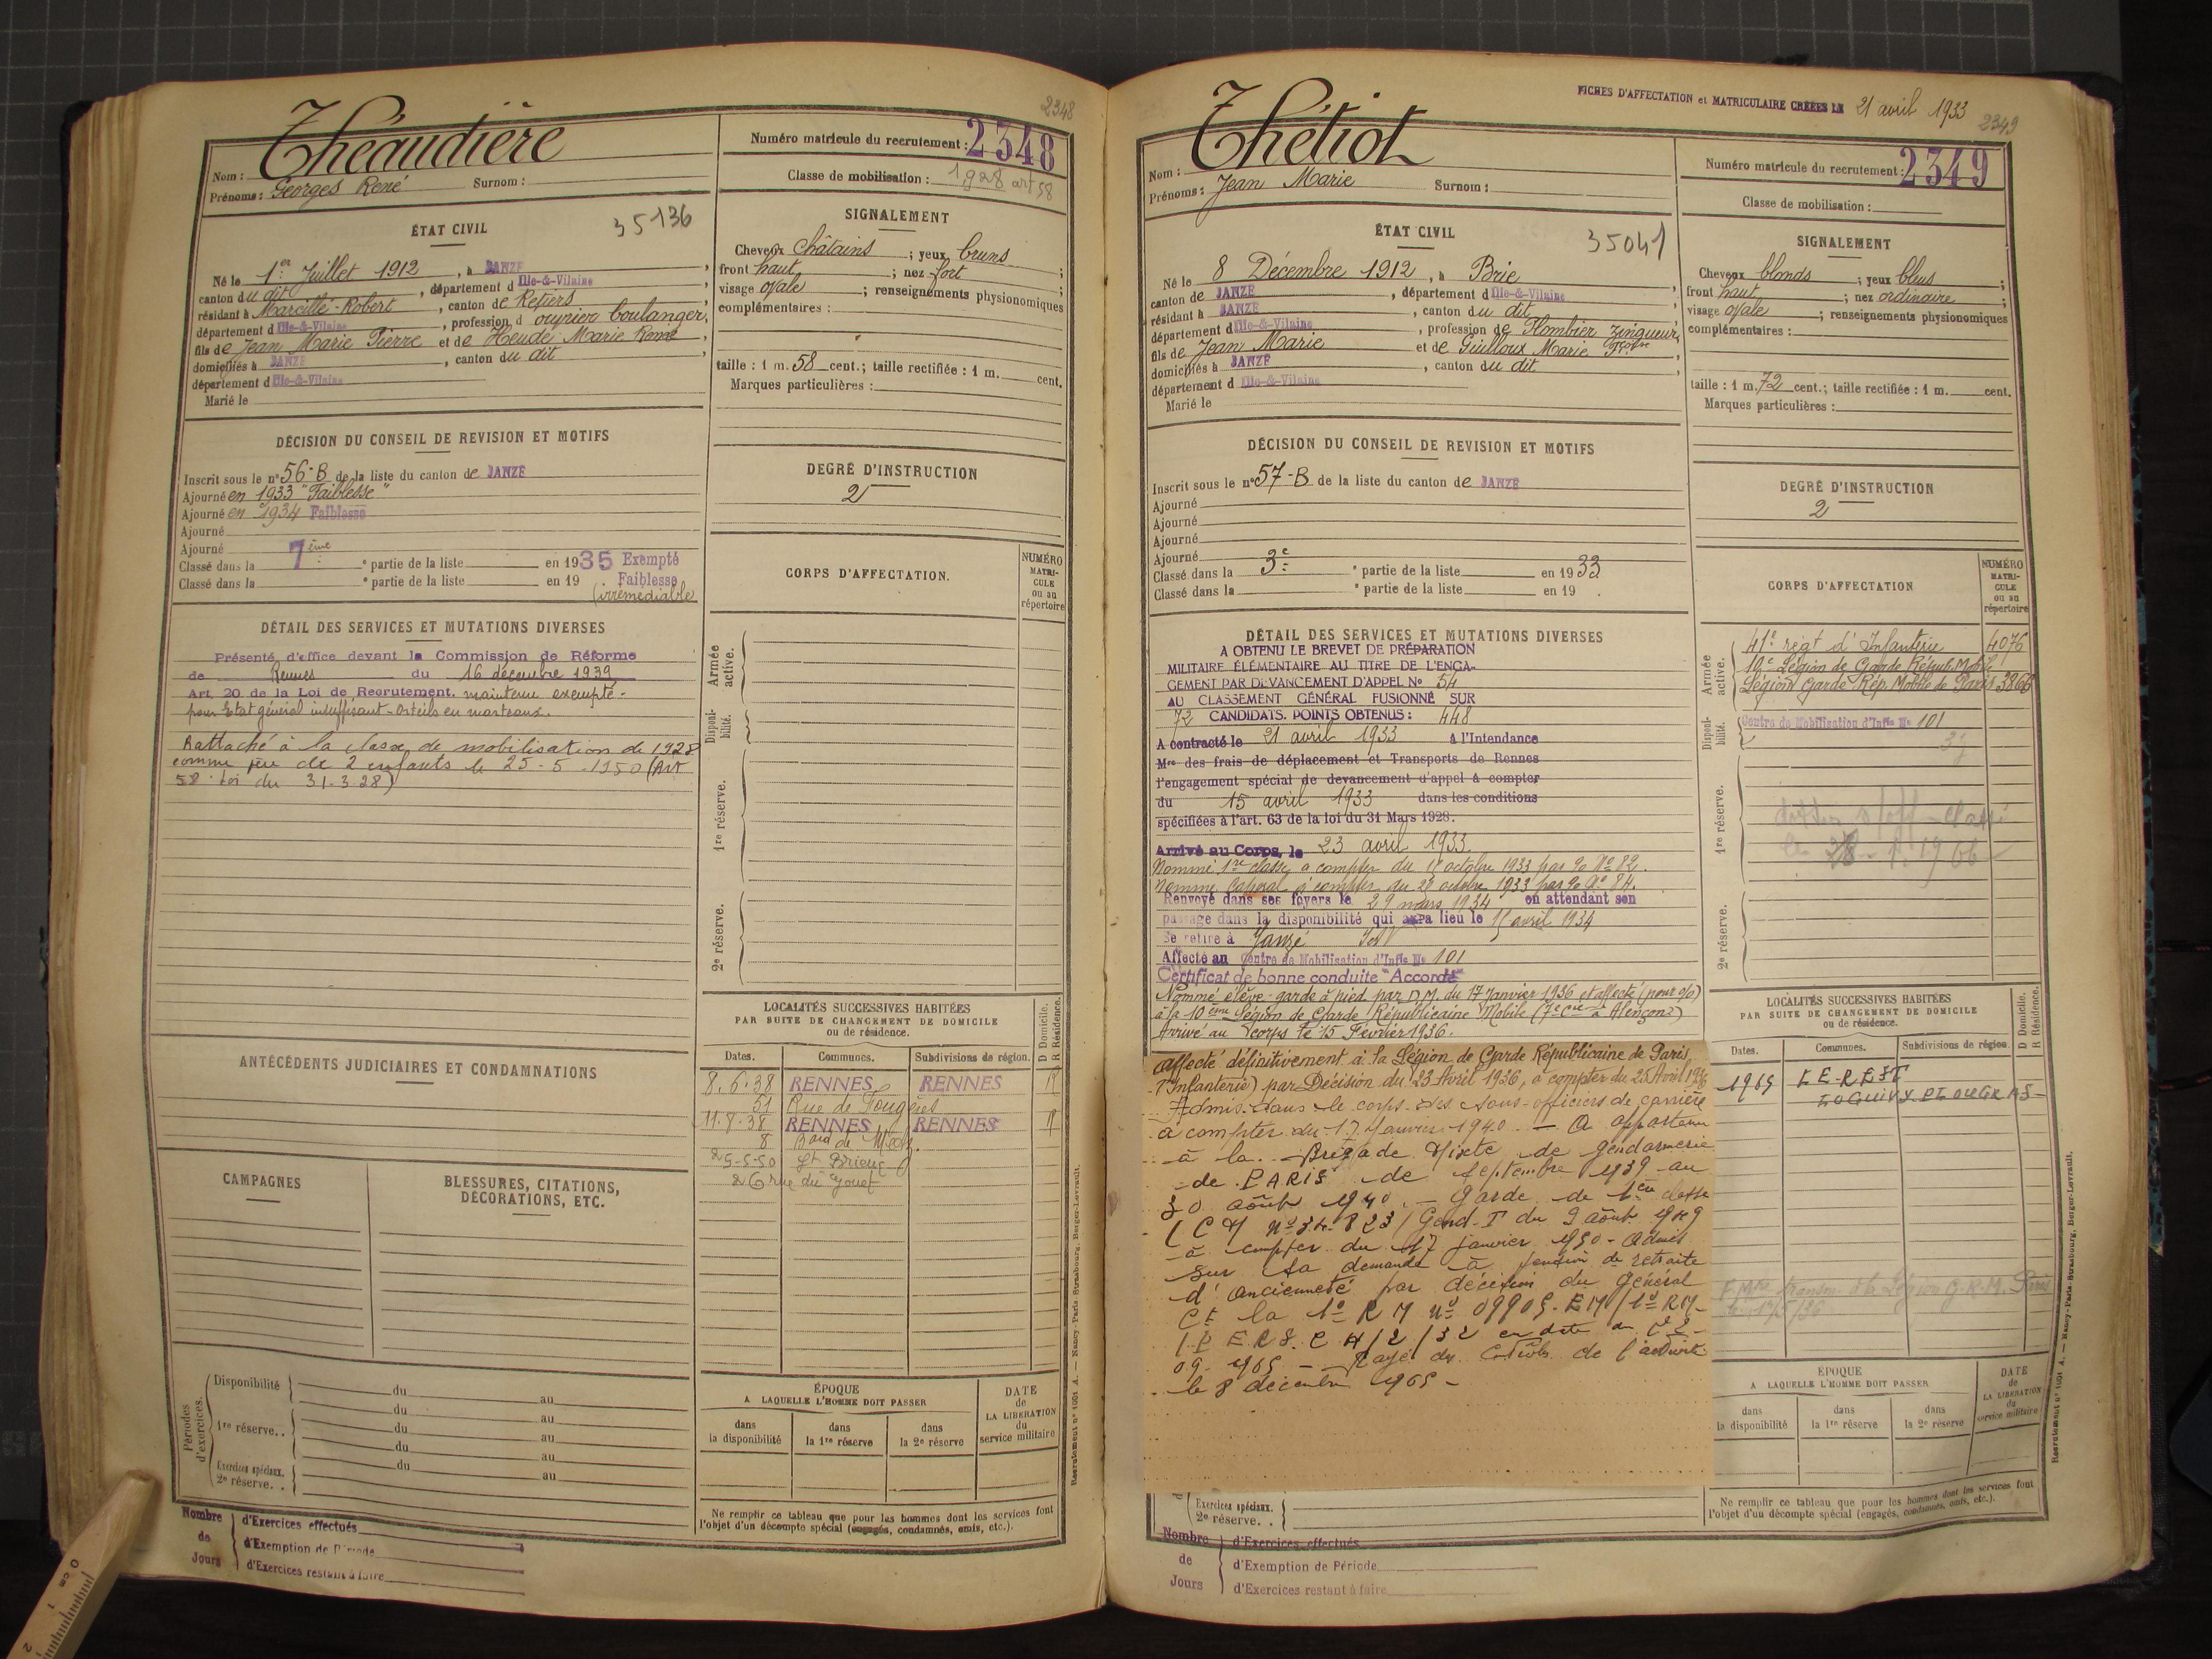 2348
Nom : Théaudière
Prénoms : Georges René Surnom :
Numéro matricule du recrutement : 2348
Classe de mobilisation : 1928 art 58
ÉTAT CIVIL
35136
Né le 1er Juillet 1912, à JANZÉ,
canton du dit, département d Ille-&-Vilaine
résidant à Marcillé-Robert, canton de Retiers
département d Ille-&-Vilaine, profession d ouvrier boulanger,
fils de Jean Marie Pierre et de Heudé Marie Reine
domiciliés à JANZÉ, canton du dit,
département d Ille-&-Vilaine
Marié le
SIGNALEMENT
Cheveux châtains ; yeux bruns ;
front haut ; nez fort ;
visage ovale ; renseignements physionomiques
complémentaires :
taille : 1 m. 58 cent.; taille rectifiée : 1 m. cent.
Marques particulières :
DÉCISION DU CONSEIL DE REVISION ET MOTIFS
Inscrit sous le n° 56-B de la liste du canton de JANZÉ
Ajourné en 1933 "Faiblesse"
Ajourné en 1934 Faiblesse
Ajourné
Ajourné
Classé dans la 7ème partie de la liste en 1935 Exempté
Classé dans la e partie de la liste en 19 . Faiblesse
(irrémédiable
DEGRÉ D'INSTRUCTION
2
CORPS D'AFFECTATION.
NUMÉRO MATRICULE ou au répertoire
Armée active.
Disponibilité.
1re réserve.
2e réserve.
DÉTAIL DES SERVICES ET MUTATIONS DIVERSES
Présenté d'office devant la Commission de Réforme
de Rennes du 16 décembre 1939
Art. 20 de la Loi de Recrutement. maintenu exempté -
pour Etat général insuffisant - Orteils en marteaux.
Rattaché à la classe de mobilisation de 1928
comme père de 2 enfants le 25-5-1950 (Art
58 loi du 31-3-28)
ANTÉCÉDENTS JUDICIAIRES ET CONDAMNATIONS
CAMPAGNES
BLESSURES, CITATIONS, DÉCORATIONS, ETC.
LOCALITÉS SUCCESSIVES HABITÉES
PAR SUITE DE CHANGEMENT DE DOMICILE
ou de résidence.
D Domicile. R Résidence.
Dates. Communes. Subdivisions de région.
8.6.38 RENNES RENNES R
51 Rue de Fougères
11.8.38 RENNES RENNES R
8 Bard de
25-5-50 St Brieuc
26 rue du Gouet
Périodes d'exercices.
Disponibilité du au
1re réserve.. du au
du au
du au
Exercices spéciaux. 2e réserve. . du au
ÉPOQUE
A LAQUELLE L'HOMME DOIT PASSER
dans la disponibilité
dans la 1re réserve
dans la 2e réserve
DATE de LA LIBÉRATION du service militaire
Ne remplir ce tableau que pour les hommes dont les services font
l'objet d'un décompte spécial (engagés, condamnés, omis, etc.).
Nombre de Jours
d'Exercices effectués
d'Exemption de Période
d'Exercices restant à faire
Recrutement n° 1001 A. — Nancy-Paris-Strasbourg, Berger-Levrault.
FICHES D'AFFECTATION et MATRICULAIRE CRÉÉES LE 21 avril 1933
2349
Nom : Thétiot
Prénoms : Jean Marie Surnom :
Numéro matricule du recrutement : 2349
Classe de mobilisation :
ÉTAT CIVIL
35041
Né le 8 Décembre 1912, à Brie,
canton de JANZÉ, département d Ille-&-Vilaine
résidant à JANZÉ, canton du dit,
département d Ille-&-Vilaine, profession de Plombier zingueur,
fils de Jean Marie et de Guilloux Marie Fçoise
domiciliés à JANZÉ, canton du dit,
département d Ille-&-Vilaine
Marié le
SIGNALEMENT
Cheveux blonds ; yeux bleus ;
front haut ; nez ordinaire ;
visage ovale ; renseignements physionomiques
complémentaires :
taille : 1 m. 72 cent.; taille rectifiée : 1 m. cent.
Marques particulières :
DÉCISION DU CONSEIL DE REVISION ET MOTIFS
Inscrit sous le n° 57-B de la liste du canton de JANZÉ
Ajourné
Ajourné
Ajourné
Ajourné
Classé dans la 3e partie de la liste en 1933
Classé dans la e partie de la liste en 19 .
DEGRÉ D'INSTRUCTION
2
CORPS D'AFFECTATION
NUMÉRO MATRICULE ou au répertoire
Armée active.
41e régt d'Infanterie 4076
10e Légion de Garde Républ. Mobile
Légion Garde Rép. Mobile de Paris 3866
Disponibilité.
Centre de Mobilisation d'Infie N° 101
1re réserve.
2e réserve.
DÉTAIL DES SERVICES ET MUTATIONS DIVERSES
A OBTENU LE BREVET DE PRÉPARATION
MILITAIRE ÉLÉMENTAIRE AU TITRE DE L'ENGA-
GEMENT PAR DEVANCEMENT D'APPEL N° 54
AU CLASSEMENT GÉNÉRAL FUSIONNÉ SUR
72 CANDIDATS. POINTS OBTENUS : 448
A contracté le 21 avril 1933 à l'Intendance
Mre des frais de déplacement et Transports de Rennes
l'engagement spécial de devancement d'appel à compter
du 15 avril 1933 dans les conditions
spécifiées à l'art. 63 de la loi du 31 Mars 1928.
Arrivé au Corps, le 23 avril 1933.
Nommé 1re classe à compter du octobre 1933 par No 82.
Nommé Caporal à compter du 28 octobre 1933 par No 84.
Renvoyé dans ses foyers le 29 mars 1934 en attendant son
passage dans la disponibilité qui a lieu le 15 avril 1934
Se retire à Janzé I&V
Affecté au Centre de Mobilisation d'Infie N° 101
Certificat de bonne conduite "Accordé"
Nommé élève-garde à pied par D.M. du 17 Janvier 1936 et affecté (pour o/o)
à la 10ème Légion de Garde Républicaine Mobile (7e Cie à Alençon)
Arrivé au corps le 15 Février 1936.
affecté définitivement à la Légion de Garde Républicaine de Paris
(Infanterie) par Décision du 23 Avril 1936, à compter du 25 Avril 1936
Admis dans le corps des sous-officiers de carrière
à compter du 17 Janvier 1940. — A appartenu
à la Brigade Mixte de gendarmerie
de PARIS de septembre 1939 au
30 août 1940. — Garde de 1ère classe
(CM N° 34.823/Gend. T du 9 août 1949
à compter du 17 janvier 1950 - Admis
sur sa demande à pension de retraite
d'ancienneté par décision du général
Ct la 1° RM N° 09909.EM/1°RM-
en date du
09-1965 — Rayé des Ctrols de l'activité
le 8 décembre 1965 -
LOCALITÉS SUCCESSIVES HABITÉES
PAR SUITE DE CHANGEMENT DE DOMICILE
ou de résidence.
D Domicile. R Résidence.
Dates. Communes. Subdivisions de région.
1965 LE REST
LOGUIVY PLOUGRAS
ÉPOQUE
A LAQUELLE L'HOMME DOIT PASSER
dans la disponibilité
dans la 1re réserve
dans la 2e réserve
DATE de LA LIBÉRATION du service militaire
Exercices spéciaux. 2e réserve. .
Ne remplir ce tableau que pour les hommes dont les services font
l'objet d'un décompte spécial (engagés, condamnés, omis, etc.).
Nombre de Jours
d'Exercices effectués
d'Exemption de Période
d'Exercices restant à faire
Recrutement n° 1001 A. — Nancy-Paris-Strasbourg, Berger-Levrault.
0 cm 1 2